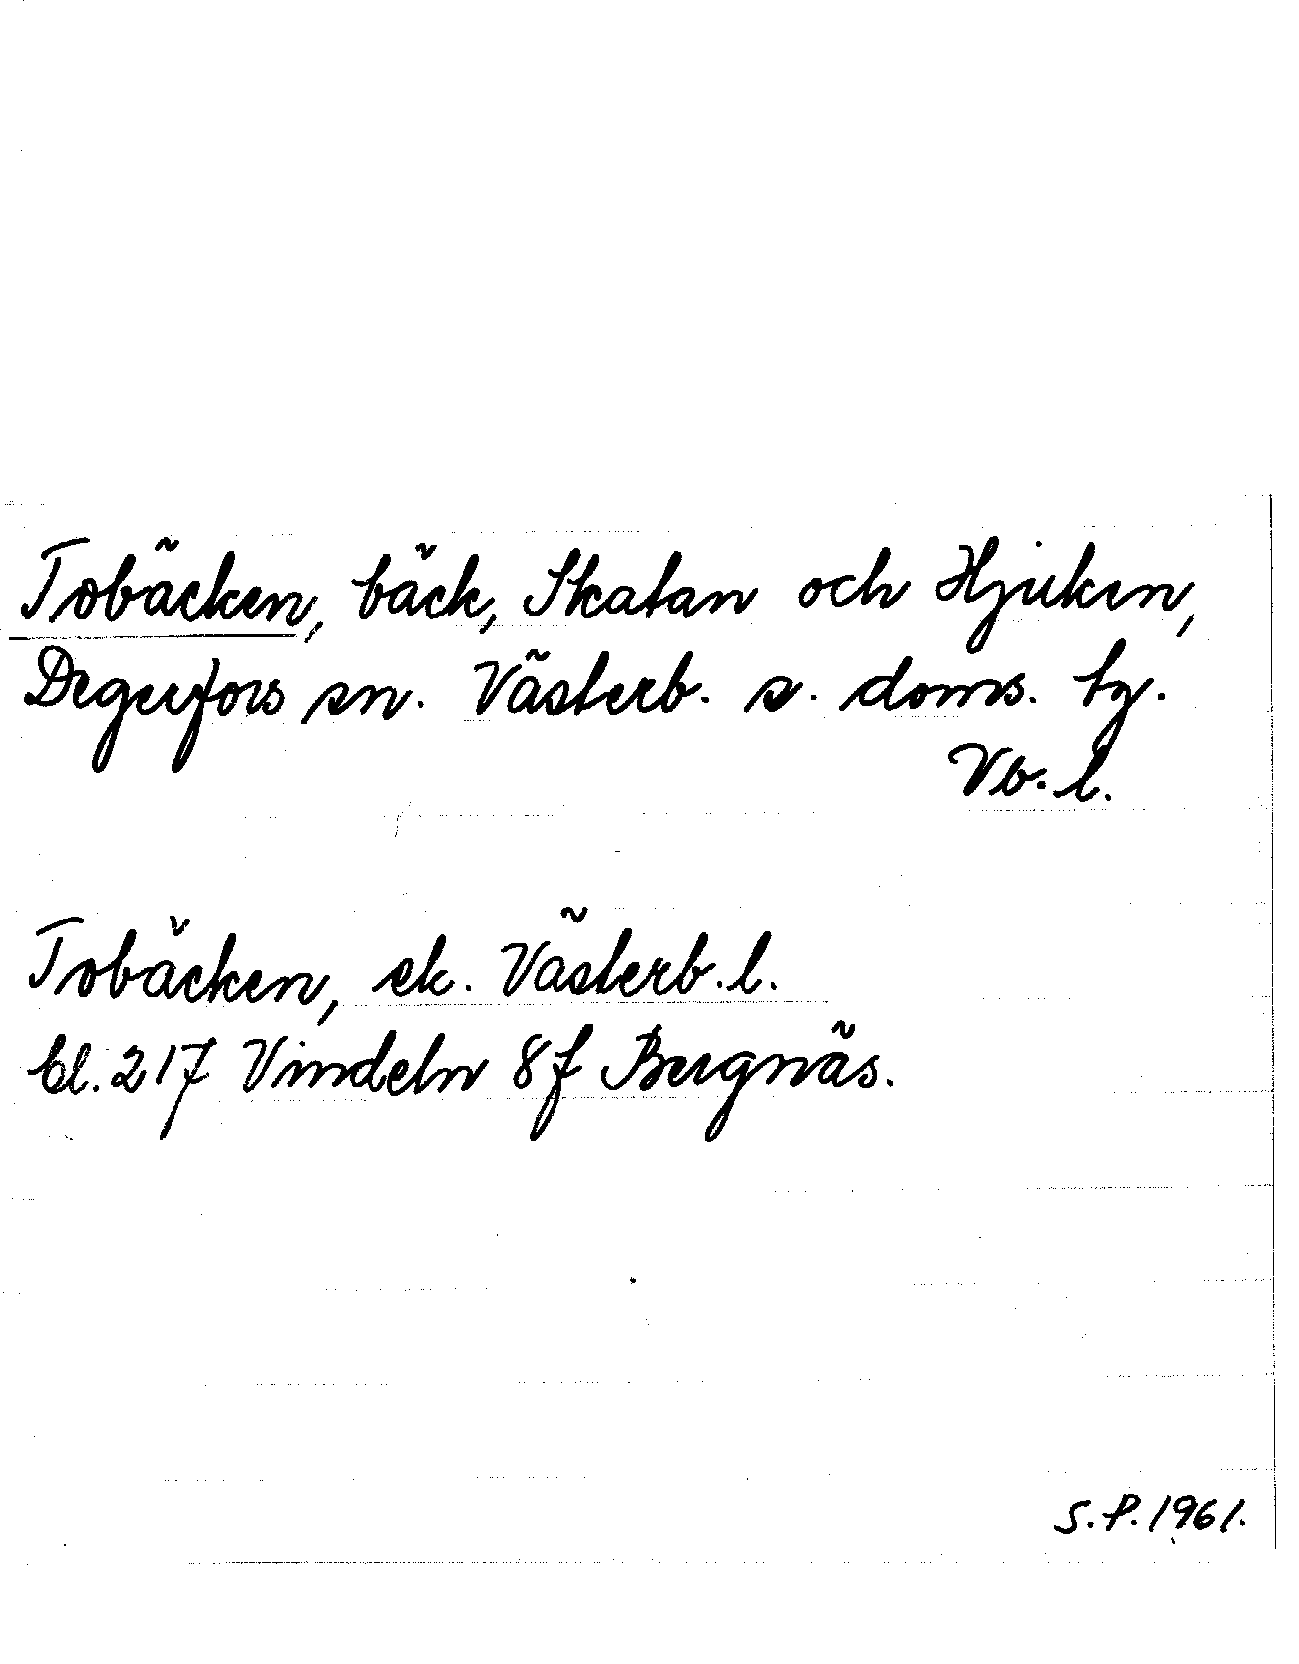 Tobäcken, bäck, Skatan och Hjuken,
Degerfors sn. Västerb. s. doms. tg.
Vb. l.
Tobäcken, ek. Västerb. l.
bl. 217 Vindeln 8f Bergnäs.
S.P. 1961.